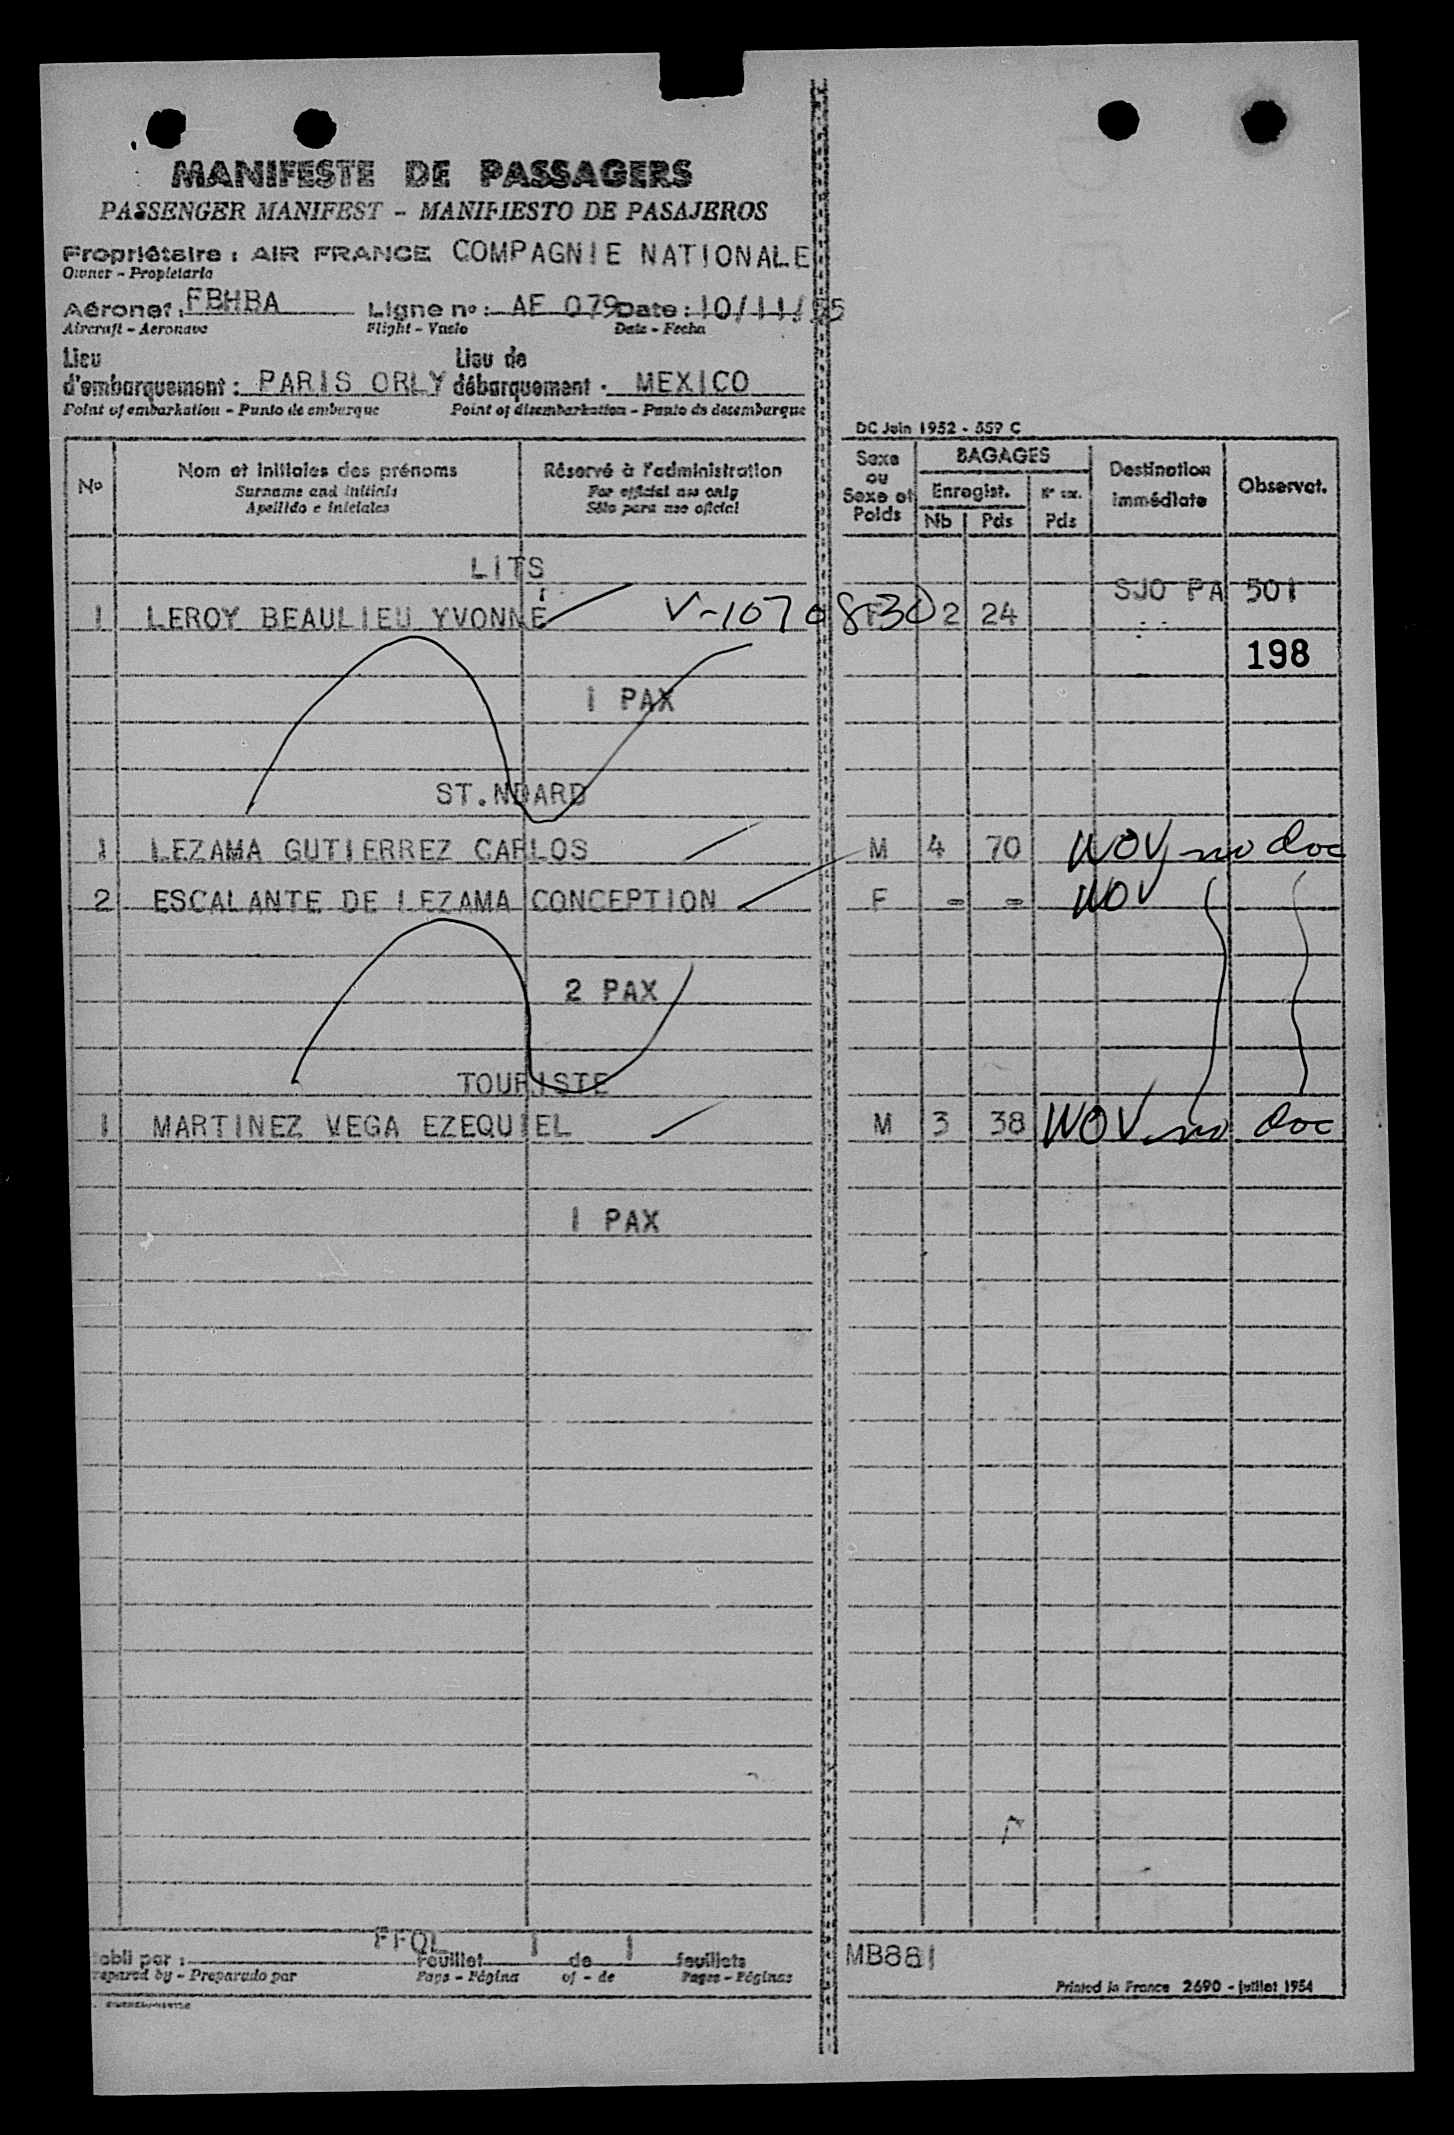 MANIFESTE DE PASSAGERS
PASSENGER MANIFEST - MANIFIESTO DE PASAJEROS
Propriétaire : AIR FRANCE COMPAGNIE NATIONALE
Owner - Propietario
Aéronef : FBHBA Ligne nº : AF 079 Date : 10/11/55
Aircraft - Aeronave Flight - Vuelo Date - Fecha
Lieu Lieu de
d'embarquement : PARIS ORLY débarquement : MEXICO
Point of embarkation - Punto de embarque Point of disembarkation - Punto de desembarque
DC Juin 1952 - 559 C
Nº Nom et initiales des prénoms Réservé à l'administration Sexe ou Sexe et Poids BAGAGES Destination immédiate Observat.
Surname and initials For official use only Enregist.
Apellido e iniciales Sólo para uso oficial Nb Pds Pds
LITS
SJO PA 501
1 LEROY BEAULIEU YVONNE V-1070830 F 2 24
198
1 PAX
ST.NDARD
1 LEZAMA GUTIERREZ CARLOS M 4 70 WOV, no doc
2 ESCALANTE DE LEZAMA CONCEPTION F = = WOV
2 PAX
TOURISTE
1 MARTINEZ VEGA EZEQUIEL M 3 38 WOV no doc
1 PAX
FFQL
tabli par : Feuillet 1 de 1 feuillets MB881
repared by - Preparado por Page - Página of - de Pages - Páginas
Printed in France 2690 - juillet 1954